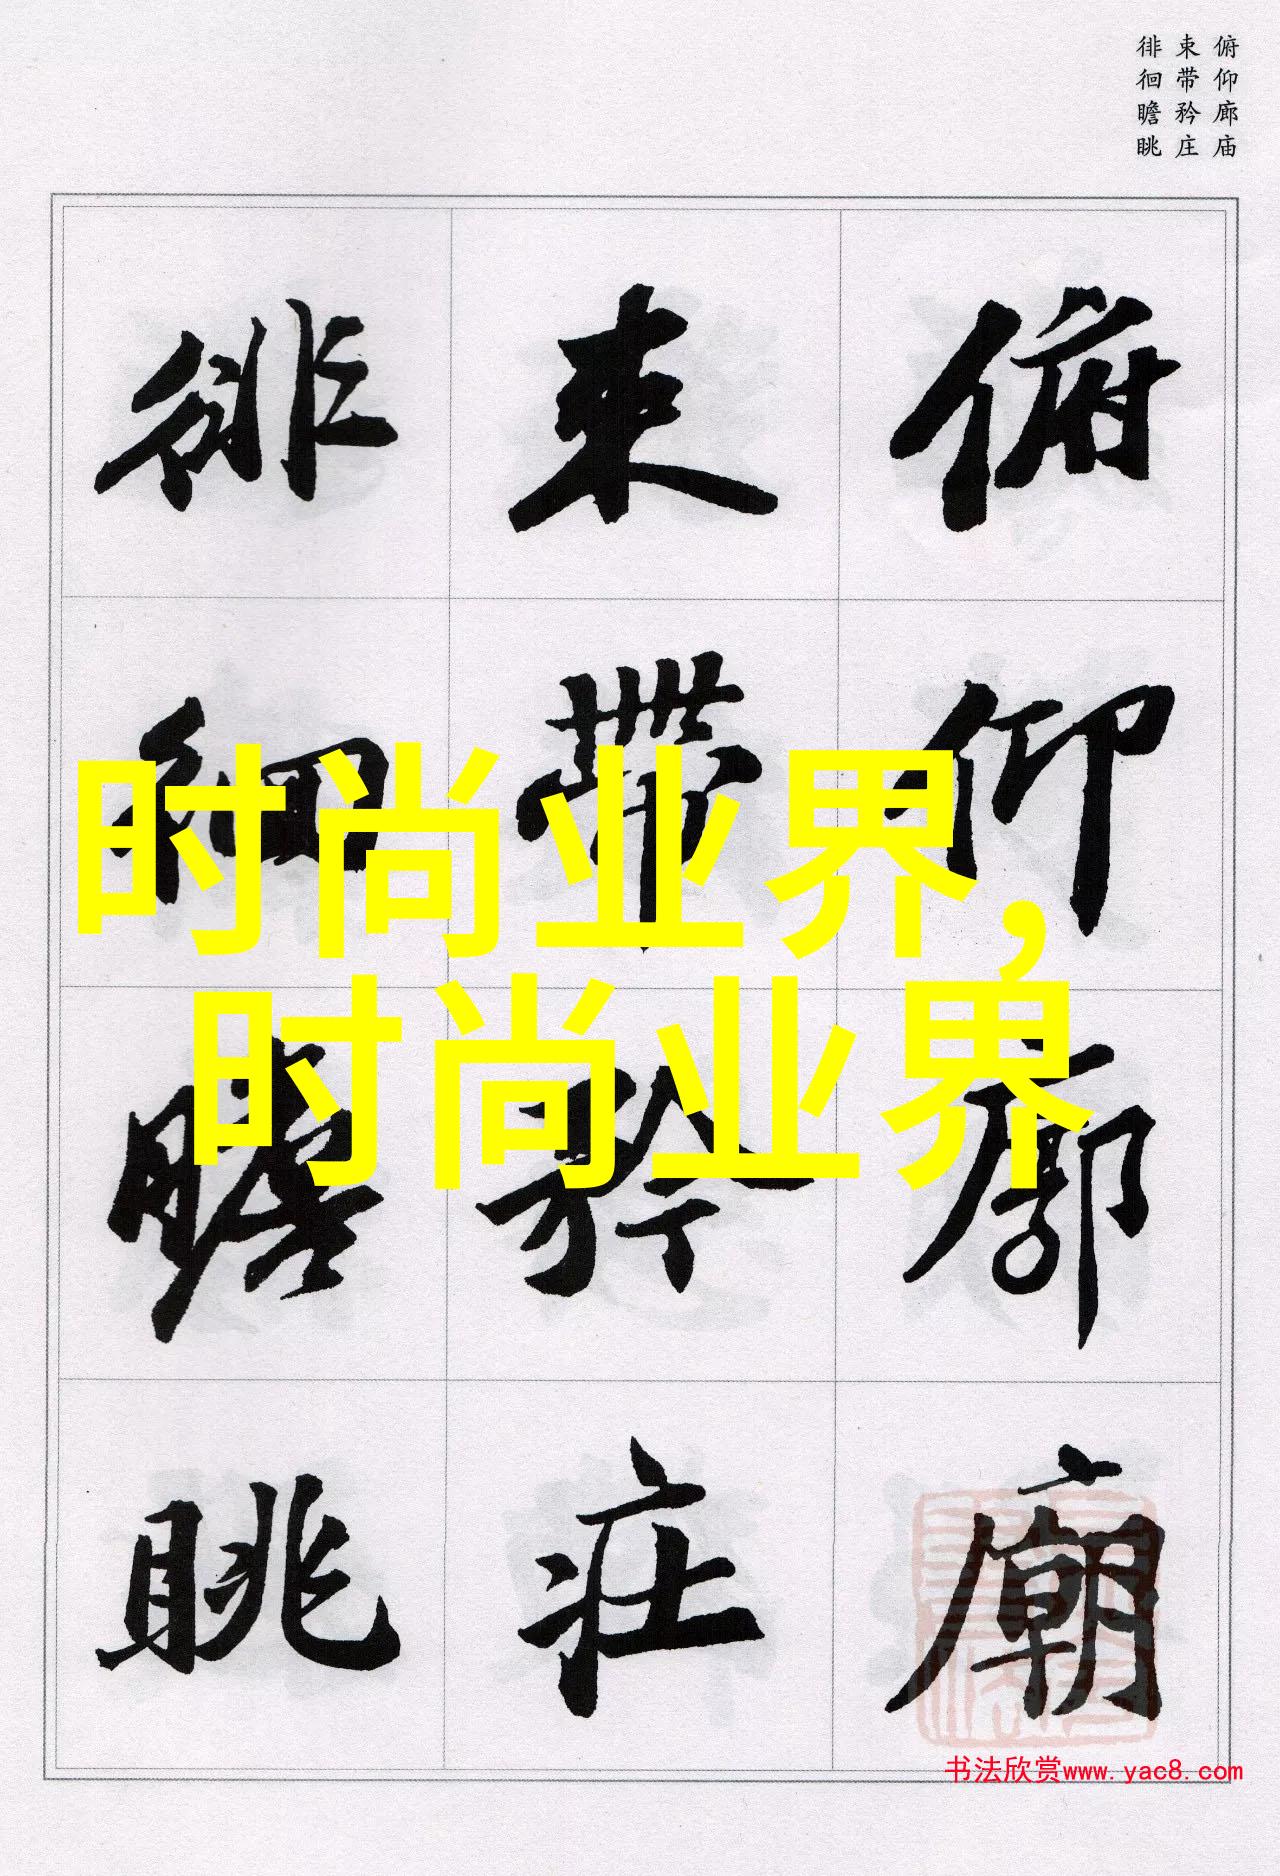 俯仰廊庙
束带矜庄
徘徊瞻眺
俯仰廊廟
束帶矜莊
徘徊瞻眺
时尚业界，
时尚业界
书法欣赏www.yac8.com